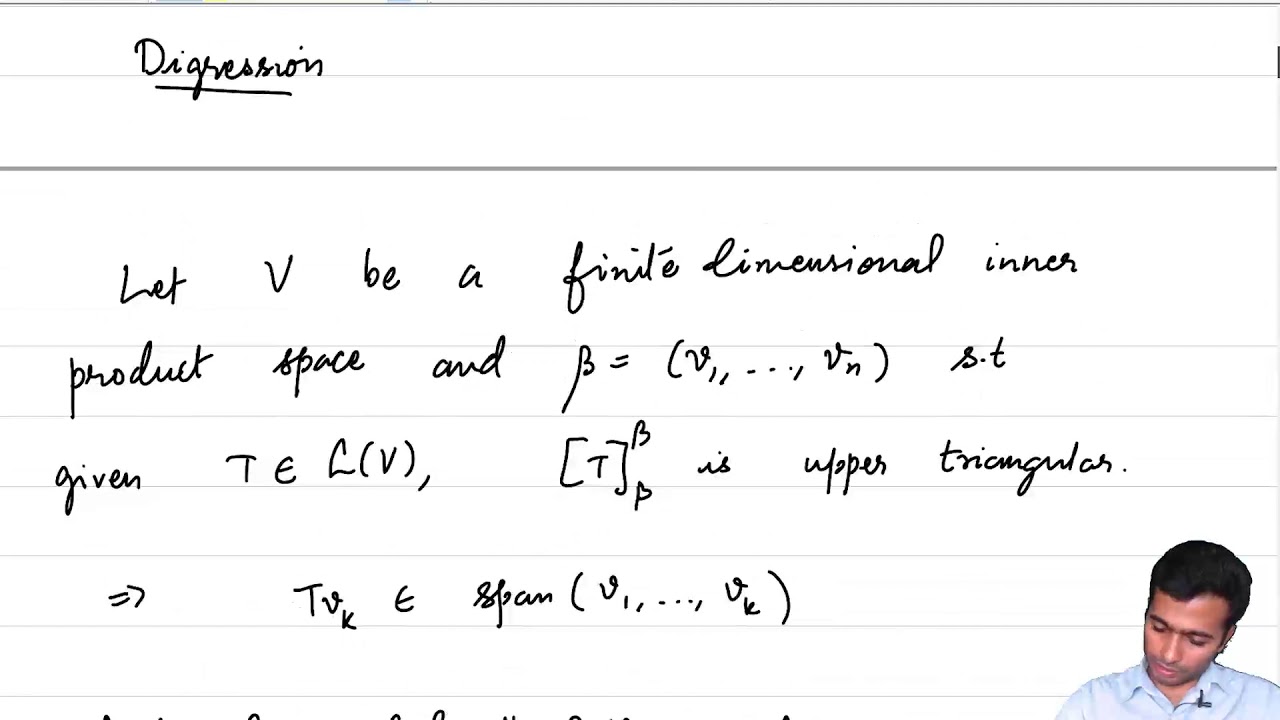 Digression
Let V be a finite dimensional inner
product space and β = (v₁, ..., vₙ) s.t
given T ∈ L(V), [T]^β_β is upper triangular.
⇒ Tv_k ∈ span(v₁, ..., v_k)